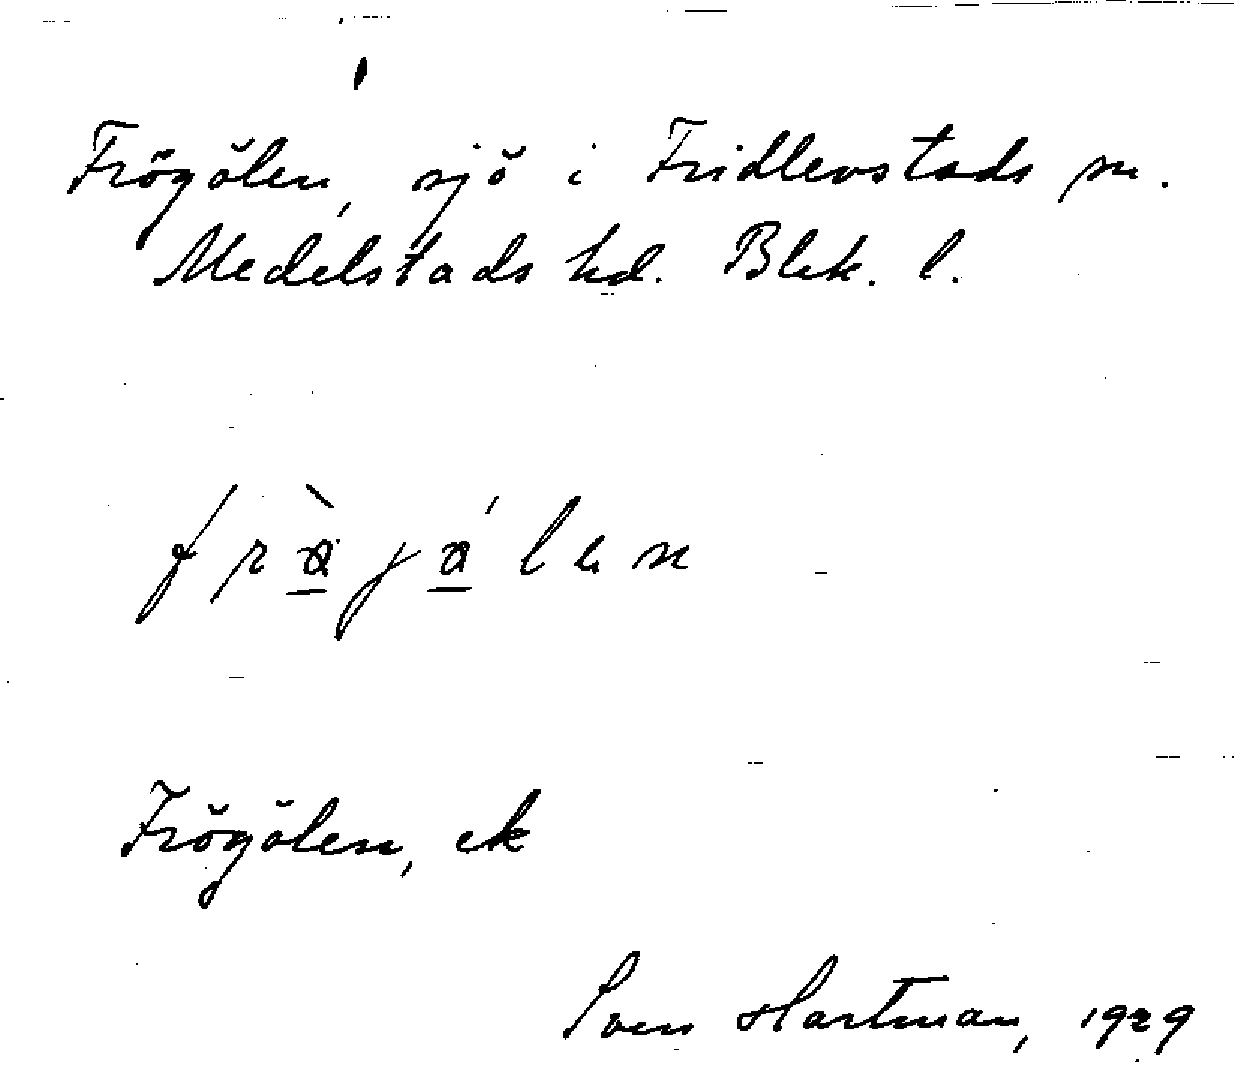 Frögölen, sjö i Fridlevstads sn.
Medelstads hd. Blek. l.
Frögölen, ek
Sven Hartman, 1929